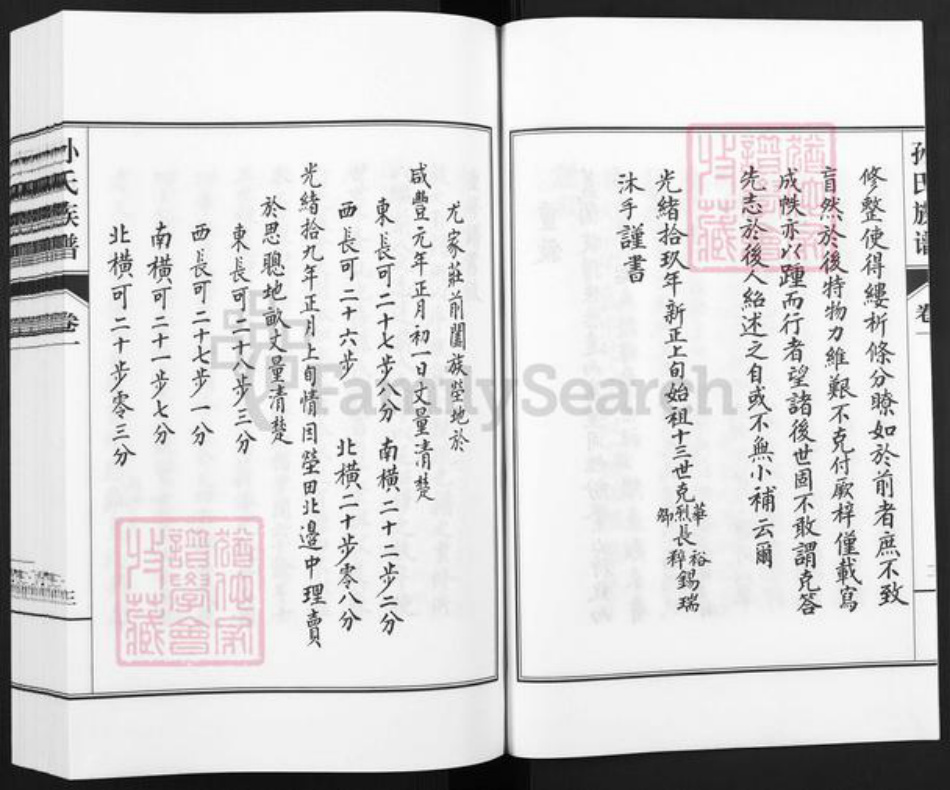 孙氏族谱
卷一
修整使得縷析條分瞭如於前者庶不致
盲然於後特物力維艱不克付厥梓僅載寫
成帙亦以踵而行者望諸後世固不敢謂克答
先志於後人紹述之自或不無小補云爾
光緒拾玖年新正上旬始祖十三世克 華 烈 卿 長 裕 粹 錫瑞
沐手謹書
尤家莊前闔族塋地於
咸豐元年正月初一日丈量清楚
東長可二十七步八分 南橫二十二步二分
西長可二十六步 北橫二十步零八分
光緒拾九年正月上旬情因塋田北邊中理賣
於思聰地畝丈量清楚
東長可二十八步三分
西長可二十七步一分
南橫可二十一步七分
北橫可二十步零三分
孙氏族谱
卷一
三
FamilySearch